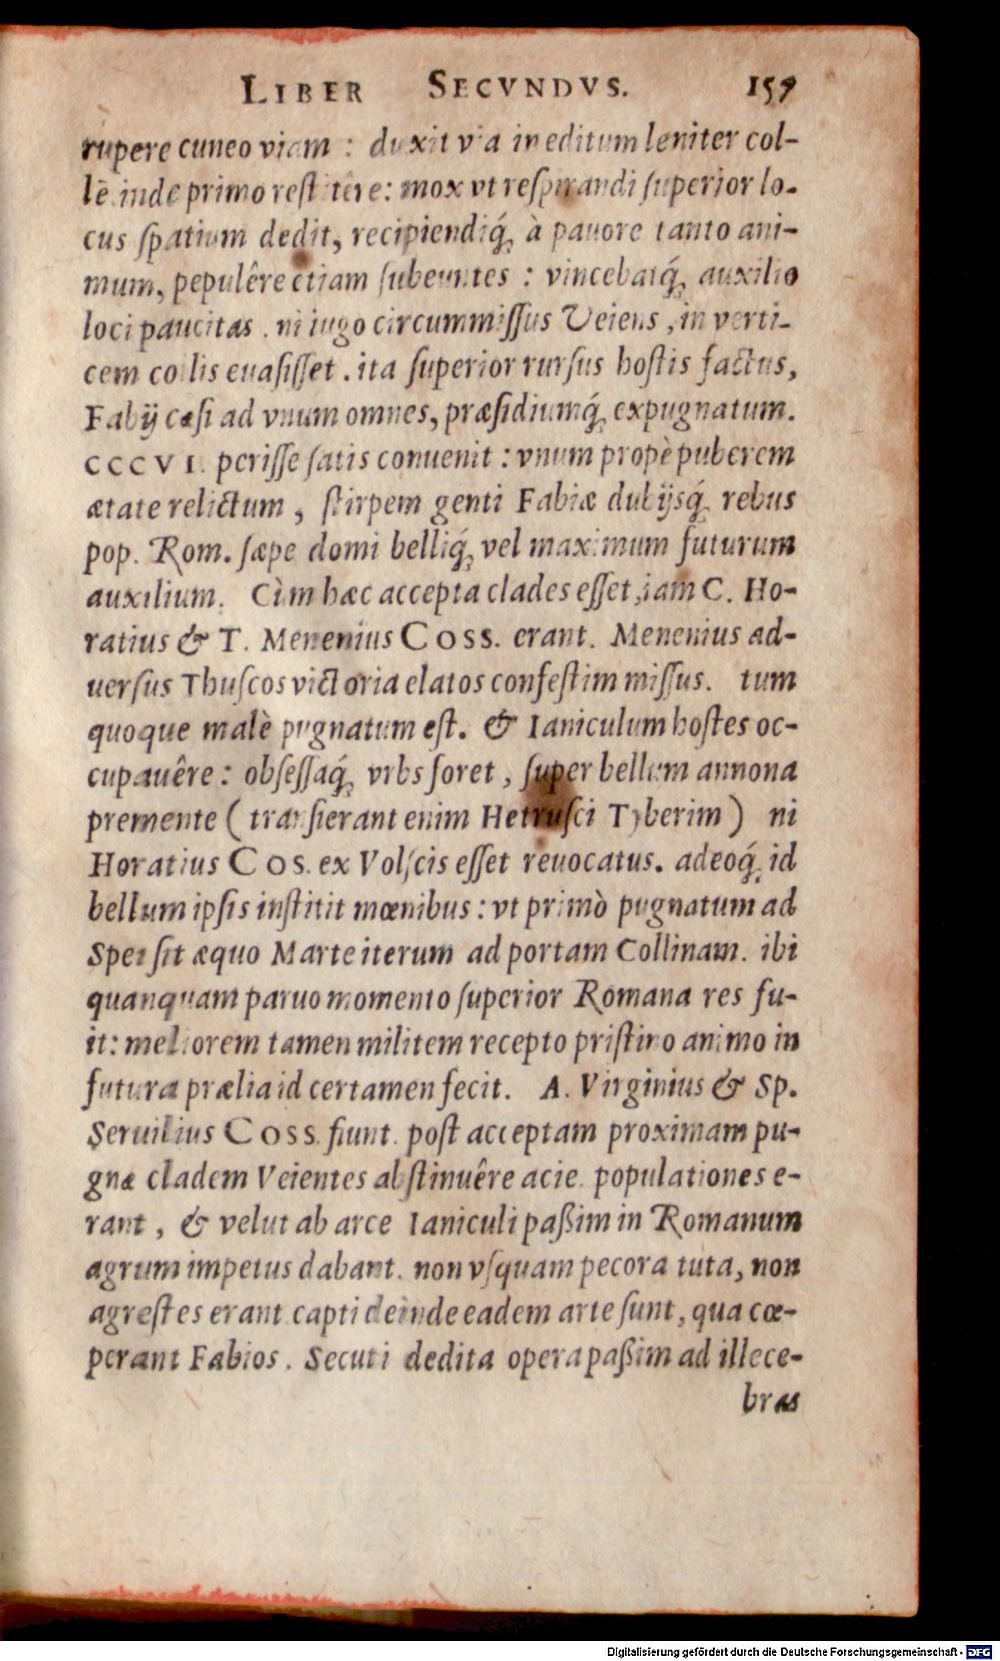 LIBER SECVNDVS. 159
rupere cuneo viam : duxit via in editum leniter col-
lẽ. inde primo restitêre: mox vt respirandi superior lo-
cus spatium dedit, recipiendiq́; à pauore tanto ani-
mum, pepulêre etiam subeuntes : vincebatq́; auxilio
loci paucitas . ni iugo circummissus Veiens , in verti-
cem collis euasisset . ita superior rursus hostis factus,
Fabij cæsi ad vnum omnes, præsidiumq́; expugnatum.
CCCVI. perisse satis conuenit : vnum propè puberem
ætate relictum , stirpem genti Fabiæ dubijsq́; rebus
pop. Rom. sæpe domi belliq́; vel maximum futurum
auxilium. Cùm hæc accepta clades esset, iam C. Ho-
ratius & T. Menenius COSS. erant. Menenius ad-
uersus Thuscos victoria elatos confestim missus. tum
quoque malè pugnatum est. & Ianiculum hostes oc-
cupauêre : obsessaq́; vrbs foret , super bellum annona
premente ( transierant enim Hetrusci Tyberim ) ni
Horatius COS. ex Volscis esset reuocatus. adeoq́; id
bellum ipsis institit mœnibus : vt primò pugnatum ad
Spei sit æquo Marte iterum ad portam Collinam. ibi
quanquam paruo momento superior Romana res fu-
it: meliorem tamen militem recepto pristino animo in
futura prælia id certamen fecit. A. Virginius & Sp.
Seruilius COSS. fiunt. post acceptam proximam pu-
gnæ cladem Veientes abstinuêre acie. populationes e-
rant , & velut ab arce Ianiculi paßim in Romanum
agrum impetus dabant. non vsquam pecora tuta, non
agrestes erant. capti deinde eadem arte sunt, qua cœ-
perant Fabios . Secuti dedita opera paßim ad illece-
bras
Digitalisierung gefördert durch die Deutsche Forschungsgemeinschaft - DFG